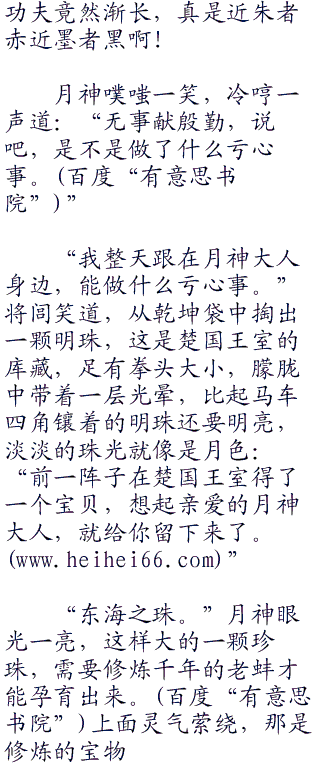 功夫竟然渐长，真是近朱者
赤近墨者黑啊！
月神噗嗤一笑，冷哼一
声道：“无事献殷勤，说
吧，是不是做了什么亏心
事。(百度“有意思书
院”)”
“我整天跟在月神大人
身边，能做什么亏心事。”
将闾笑道，从乾坤袋中掏出
一颗明珠，这是楚国王室的
库藏，足有拳头大小，朦胧
中带着一层光晕，比起马车
四角镶着的明珠还要明亮，
淡淡的珠光就像是月色：
“前一阵子在楚国王室得了
一个宝贝，想起亲爱的月神
大人，就给你留下来了。
(www.heihei66.com)”
“东海之珠。”月神眼
光一亮，这样大的一颗珍
珠，需要修炼千年的老蚌才
能孕育出来。(百度“有意思
书院”)上面灵气萦绕，那是
修炼的宝物